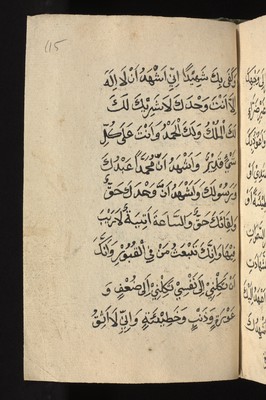 115
وكفى بك شهيدا اني اشهد ان لا اله
الا انت وحدك لا شريك لك
لك الملك ولك الحمد وانت على كل
شيء قدير واشهد ان محمدا عبدك
ورسولك واشهد ان وعدك حق
ولقائك حق والساعة اتية لا ريب
فيها وانك تبعث من في القبور وانك
ان تكلني الى نفسي تكلني الى ضعف و
عورة وذنب وخطيئة واني لا اثق